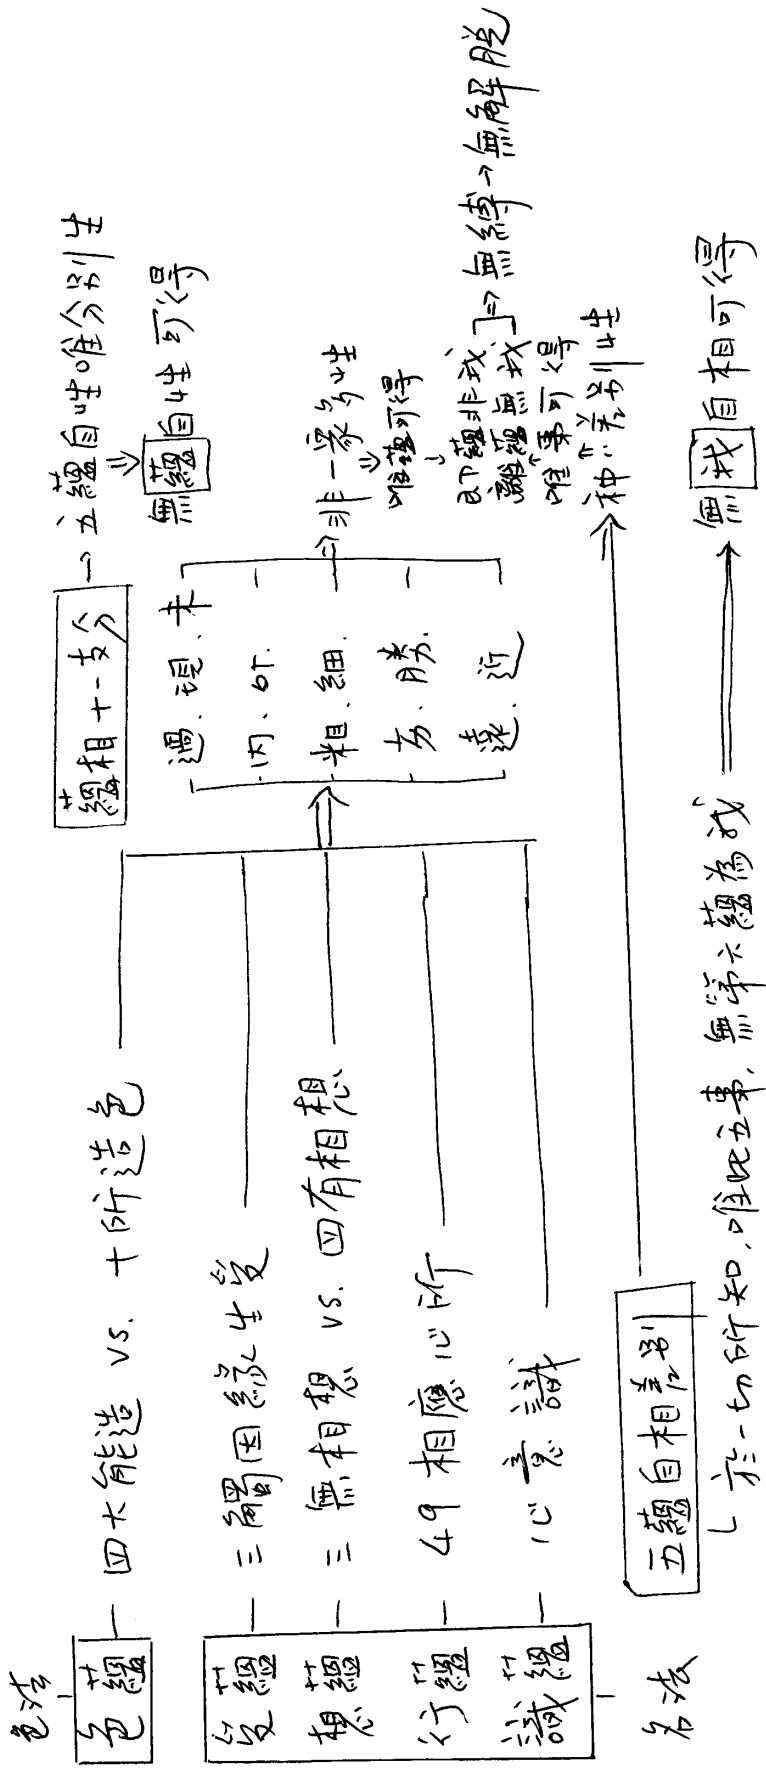 色法
色蘊 — 四大能造 vs. 十所造色
受蘊 — 三觸因緣生受
想蘊 — 三無相想 vs. 四有相想
行蘊 — 49相應心所
識蘊 — 心意識
名法
蘊相十一支分 → 五蘊自性唯分別生
⇓
無蘊自性可得
過、現、未
內、外
粗、細
劣、勝
遠、近
⇒ 非一眾多性
⇓
唯蘊可得
↓
即蘊非我
離蘊無我
⇒ 無縛→無解脫
↑
唯事可得
↑
種種差別性
五蘊自相差別
於一切所知,唯此五事,無第六蘊為我
無我自相可得